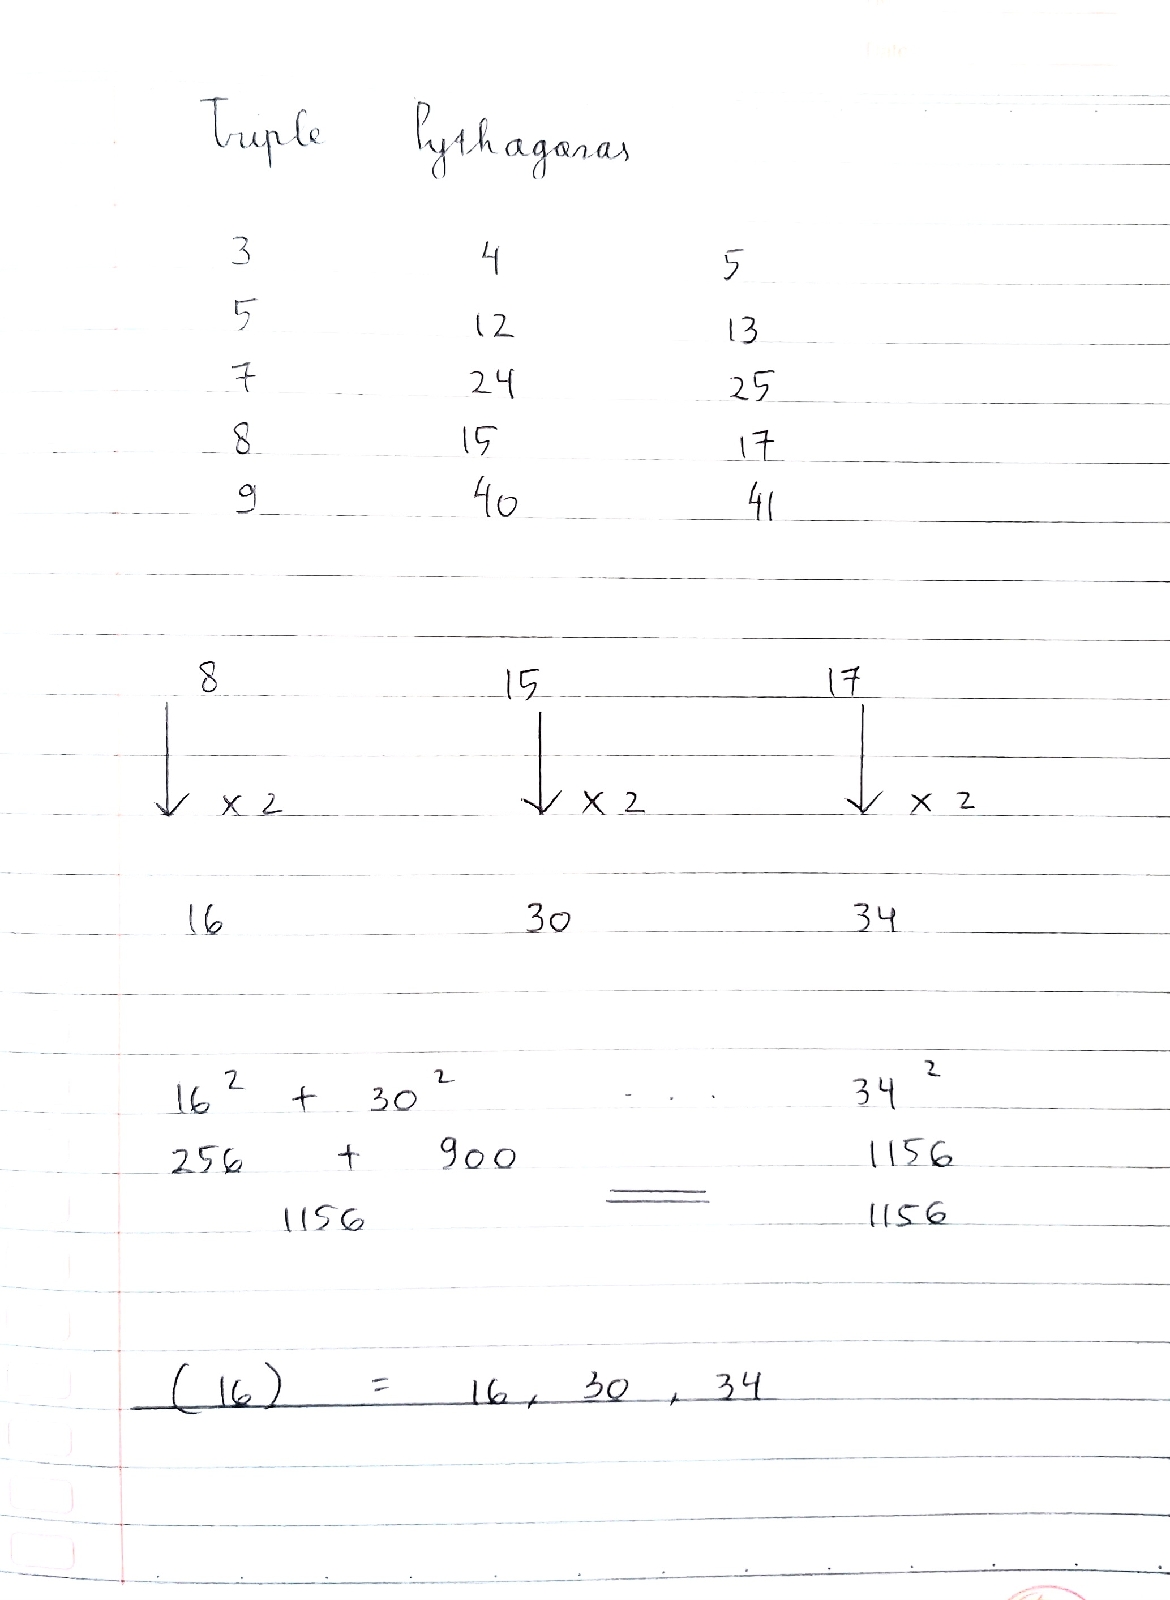 Triple Pythagoras
3 4 5
5 12 13
7 24 25
8 15 17
9 40 41
8 15 17
× 2 × 2 × 2
16 30 34
16² + 30² ... 34²
256 + 900 1156
1156 = 1156
(16) = 16, 30, 34